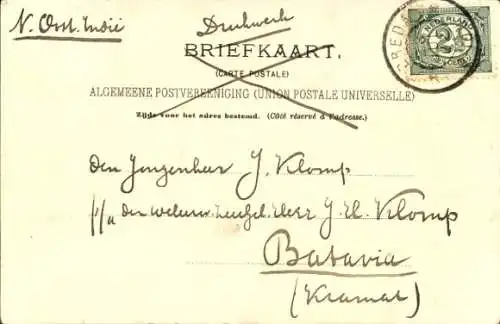 N. Oost. Indië
Drukwerk
BRIEFKAART.
(CARTE POSTALE)
ALGEMEENE POSTVEREENIGING (UNION POSTALE UNIVERSELLE)
Zijde voor het adres bestemd. (Côté réservé à l'adresse.)
NEDERLAND
2½
BREDA
den Jongenheer J. Klomp
p/a den weleerw. Heer J. H. Klomp
Batavia
(Kramat)